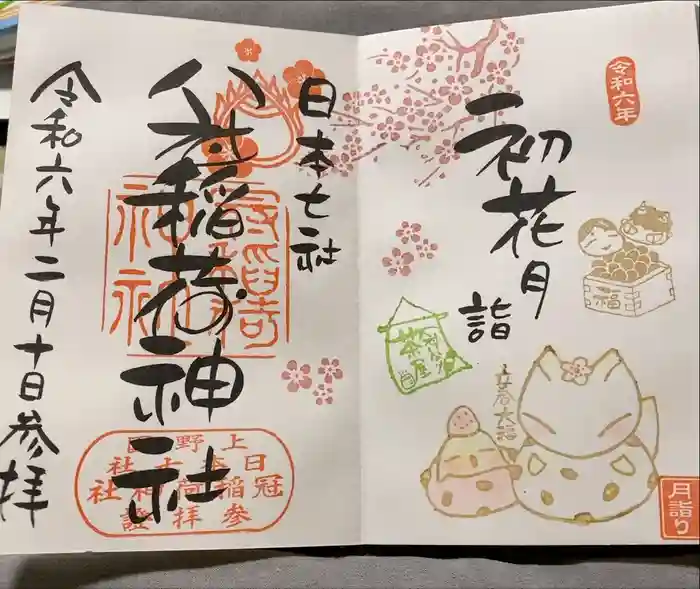 令和六年
初花月
詣
福
茶屋
大福
月詣り
日本七社
冠稲荷神社
令和六年二月十日参拝
上野国
日本七社
冠稲荷神社
参拝證